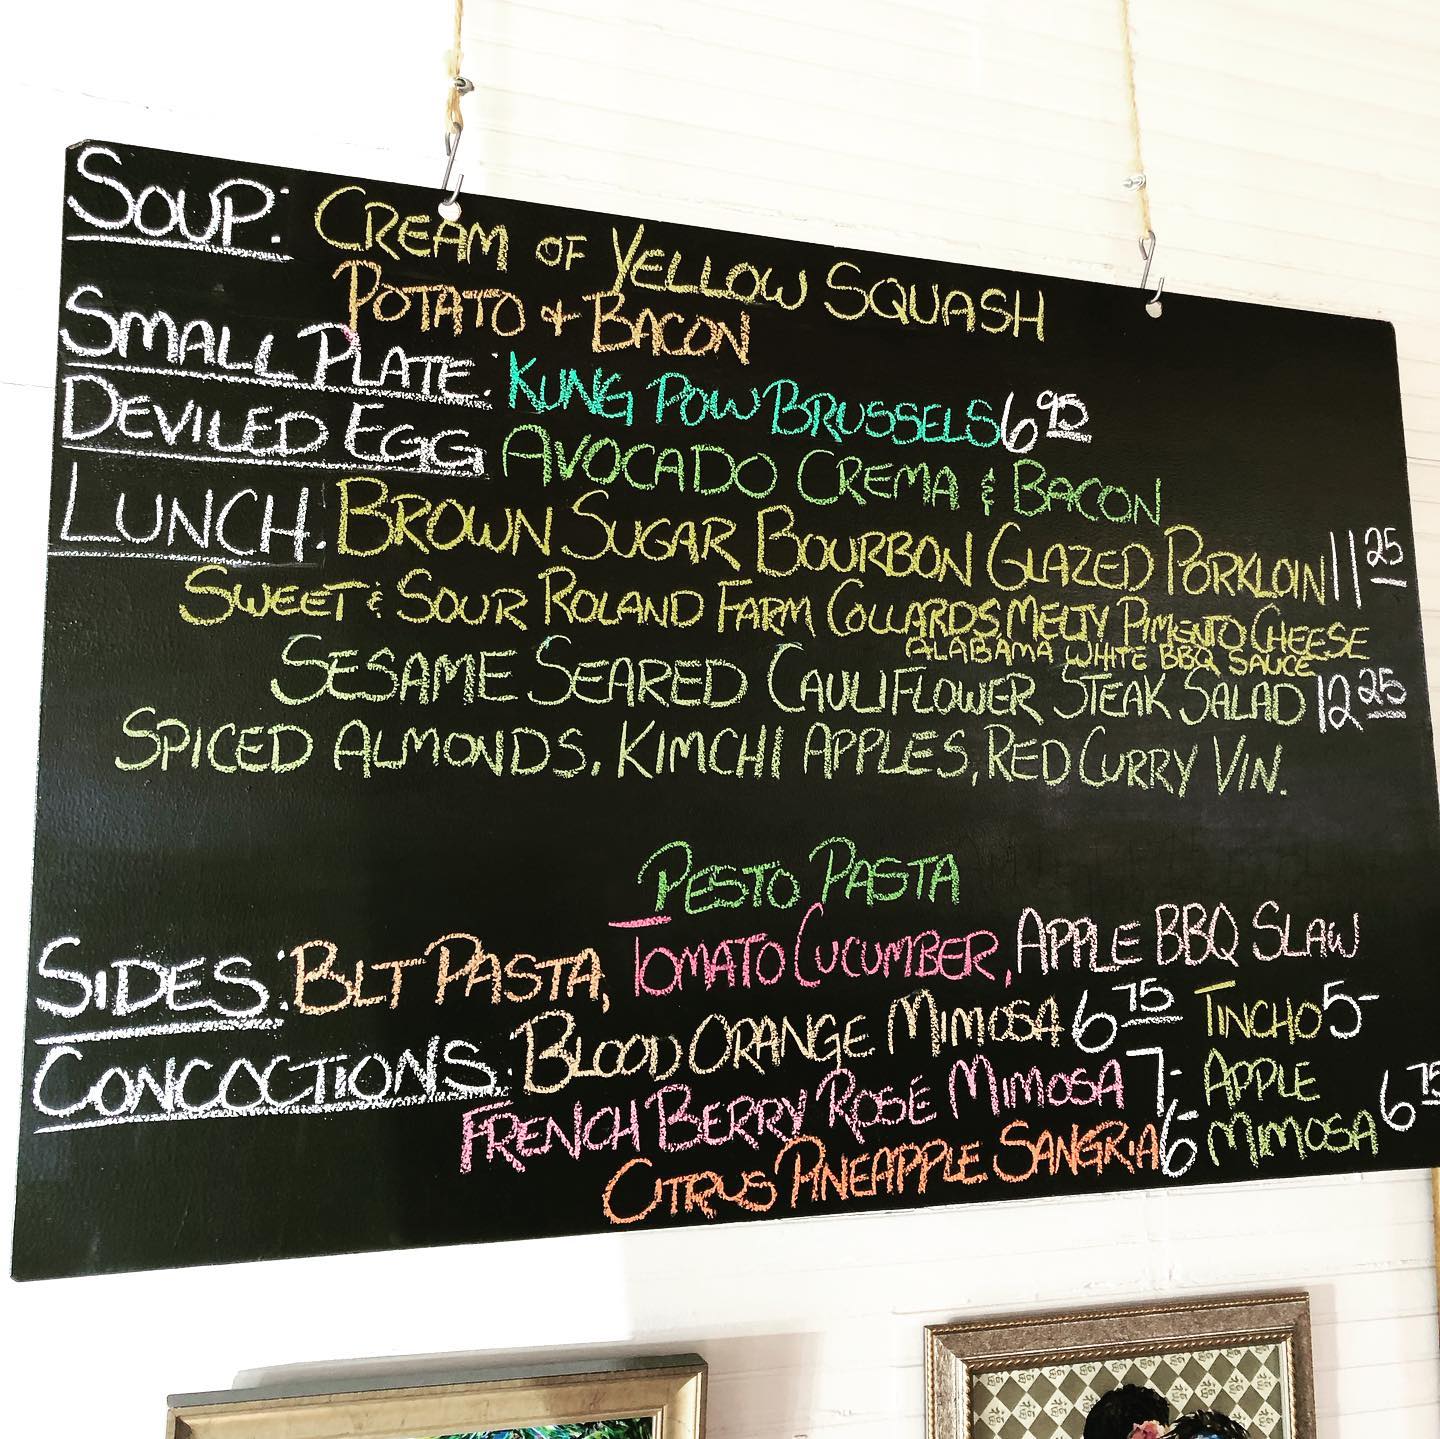 SOUP: CREAM OF YELLOW SQUASH
POTATO & BACON
SMALL PLATE: KUNG POW BRUSSELS 6 95
DEVILED EGG AVOCADO CREMA & BACON
LUNCH: BROWN SUGAR BOURBON GLAZED PORKLOIN 11 25
SWEET & SOUR ROLAND FARM COLLARDS MELTY PIMENTO CHEESE
ALABAMA WHITE BBQ SAUCE
SESAME SEARED CAULIFLOWER STEAK SALAD 12 25
SPICED ALMONDS, KIMCHI APPLES, RED CURRY VIN.
PESTO PASTA
SIDES: BLT PASTA, TOMATO CUCUMBER, APPLE BBQ SLAW
CONCOCTIONS: BLOOD ORANGE MIMOSA 6 75 TINCHO 5-
FRENCH BERRY ROSÉ MIMOSA 7- APPLE
CITRUS PINEAPPLE SANGRIA 6- MIMOSA 6 75